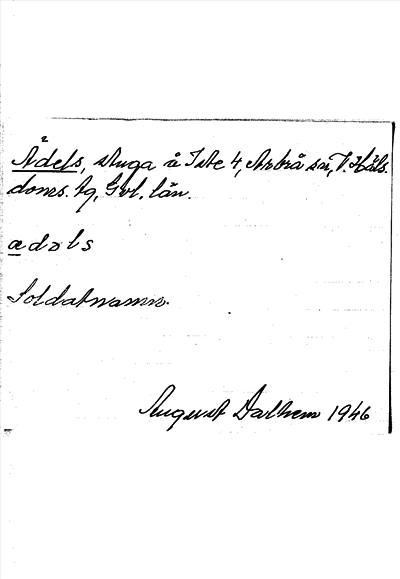 Ädels, stuga å Iste 4, Arbrå sn, V. Häls.
doms. tg, Gvl. län.
ædəls
Soldatnamn.
August Dalhem 1946